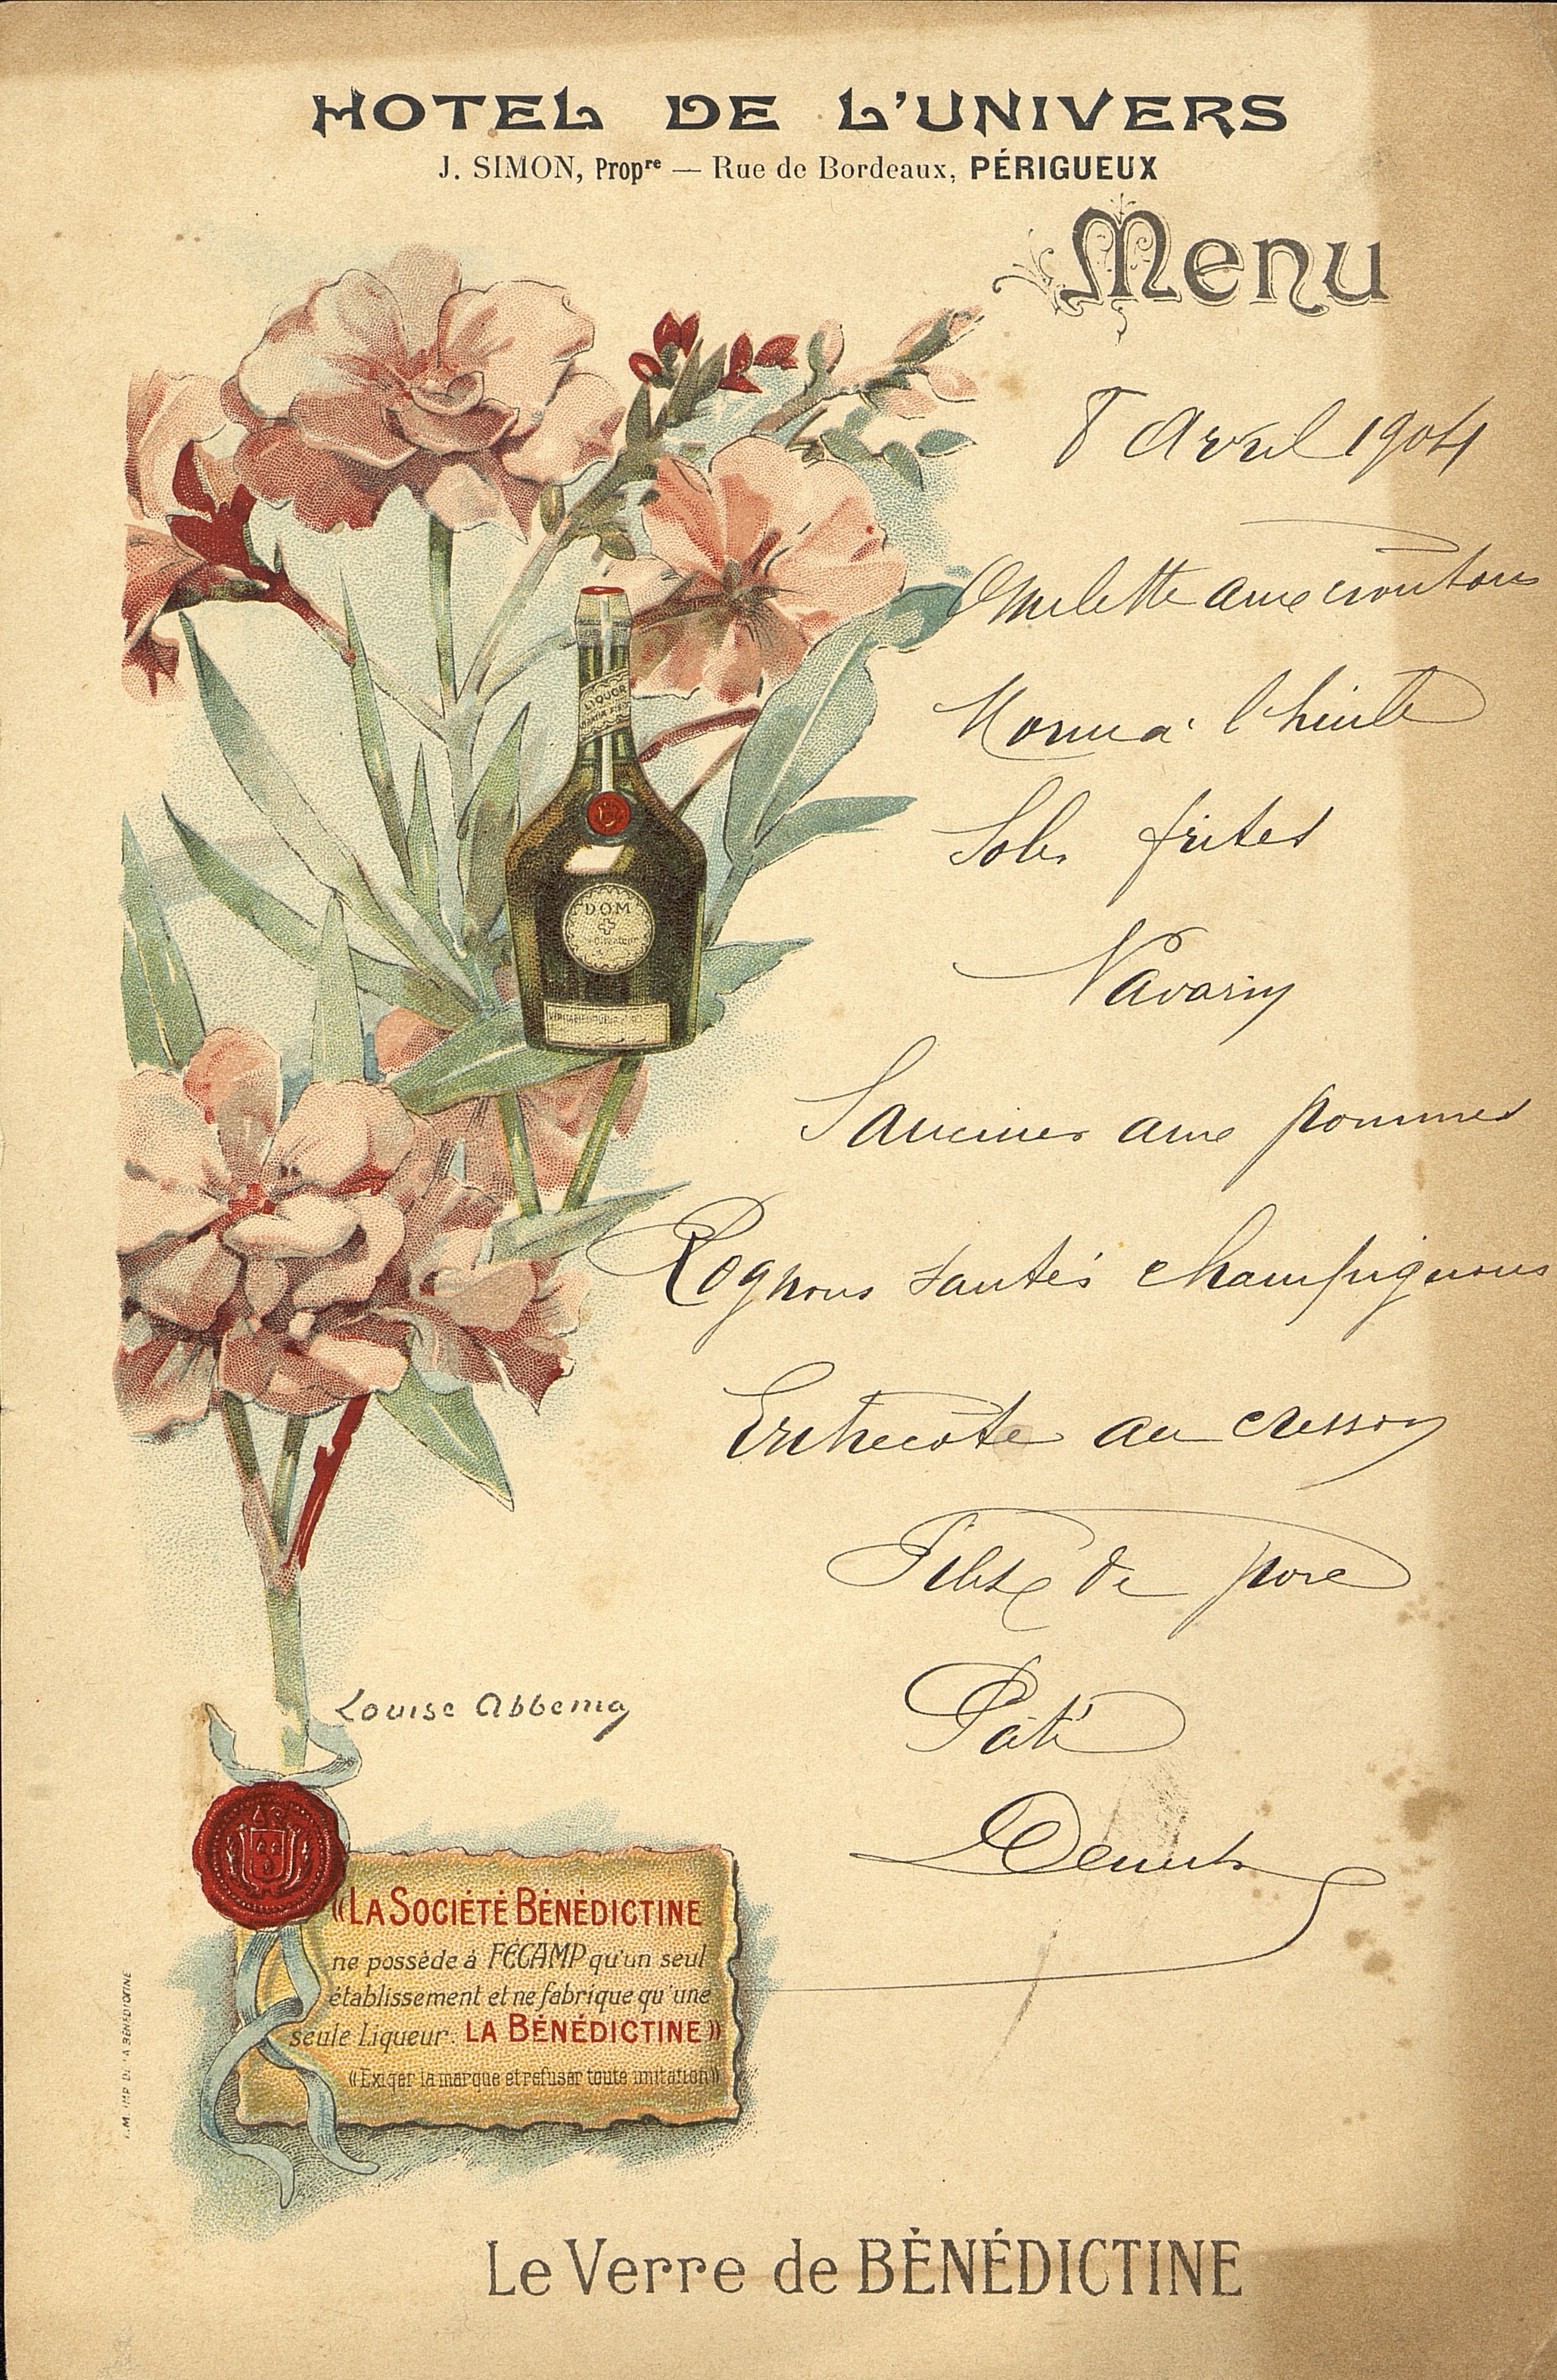 HOTEL DE L'UNIVERS
J. SIMON, Propre — Rue de Bordeaux, PÉRIGUEUX
Menu
8 Avril 1904
Omelette aux croutons
Morue à l'huile
Soles frites
Navarin
Saucisses aux pommes
Rognons sautés champignons
Entrecôte au cresson
Filet de porc
Pâté
Desserts
LIQUOR
DOM
Louise Abbema
«LA SOCIÉTÉ BÉNÉDICTINE
ne possède à FÉCAMP qu'un seul
établissement et ne fabrique qu'une
seule Liqueur: LA BÉNÉDICTINE»
«Exiger la marque et refuser toute imitation»
IMP. DE LA BÉNÉDICTINE
Le Verre de BÉNÉDICTINE